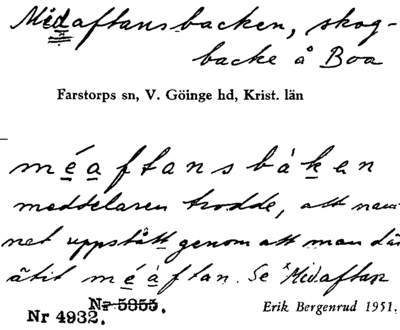 Midaftansbacken, skog-
backe å Boa
Farstorps sn, V. Göinge hd, Krist. län
méaftansbàkan
meddelaren trodde, att nam-
net uppstått genom att man där
ätit méàftan. Se ˣMidaftan
Nr 5855.
Nr 4932.
Erik Bergenrud 1951.